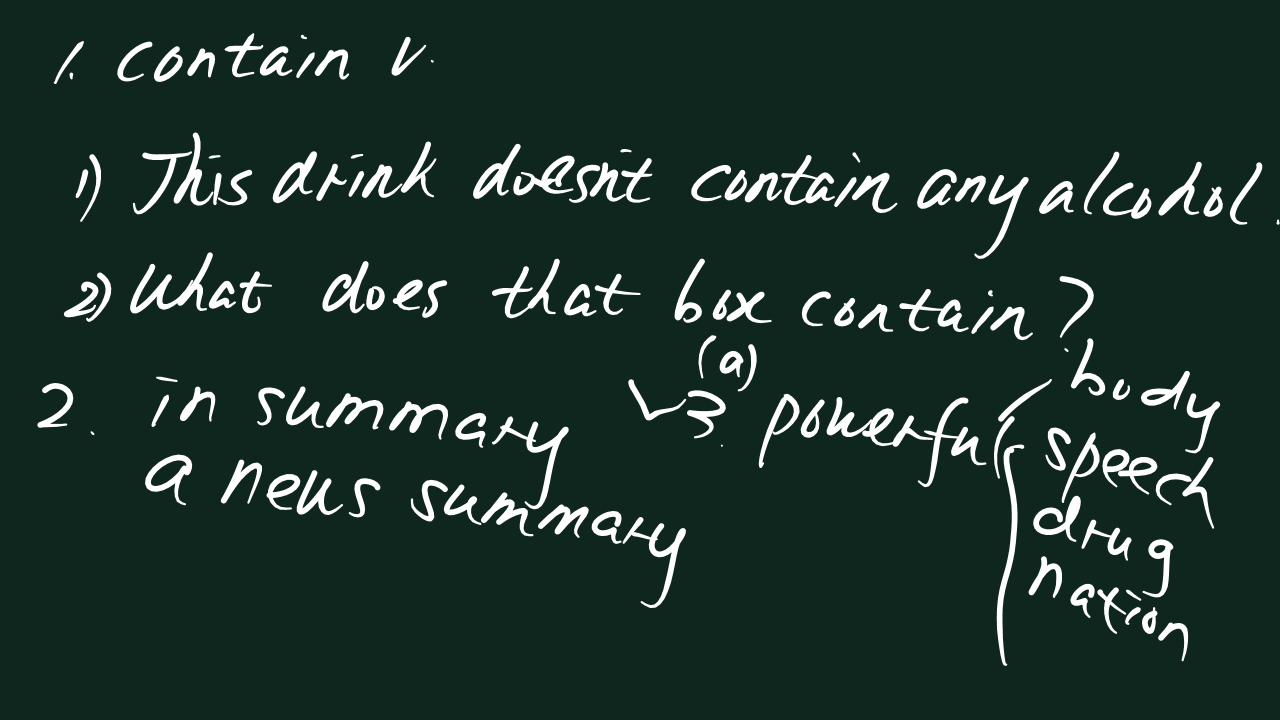 1. contain v.
1) This drink doesn't contain any alcohol.
2) What does that box contain?
2. in summary
a news summary
3. (a) powerful
body
speech
drug
nation